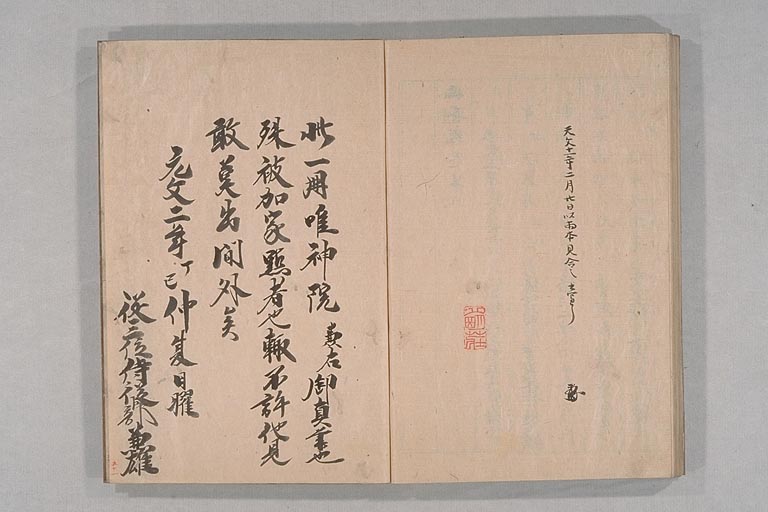 天文十二年二月廿日以両本見合之畢
此一冊唯神院兼右御真筆也
殊被加家點者也輙不許他見
敢莫出閫外矣
元文二年丁巳仲夏日曜
従二位侍従卜部兼雄